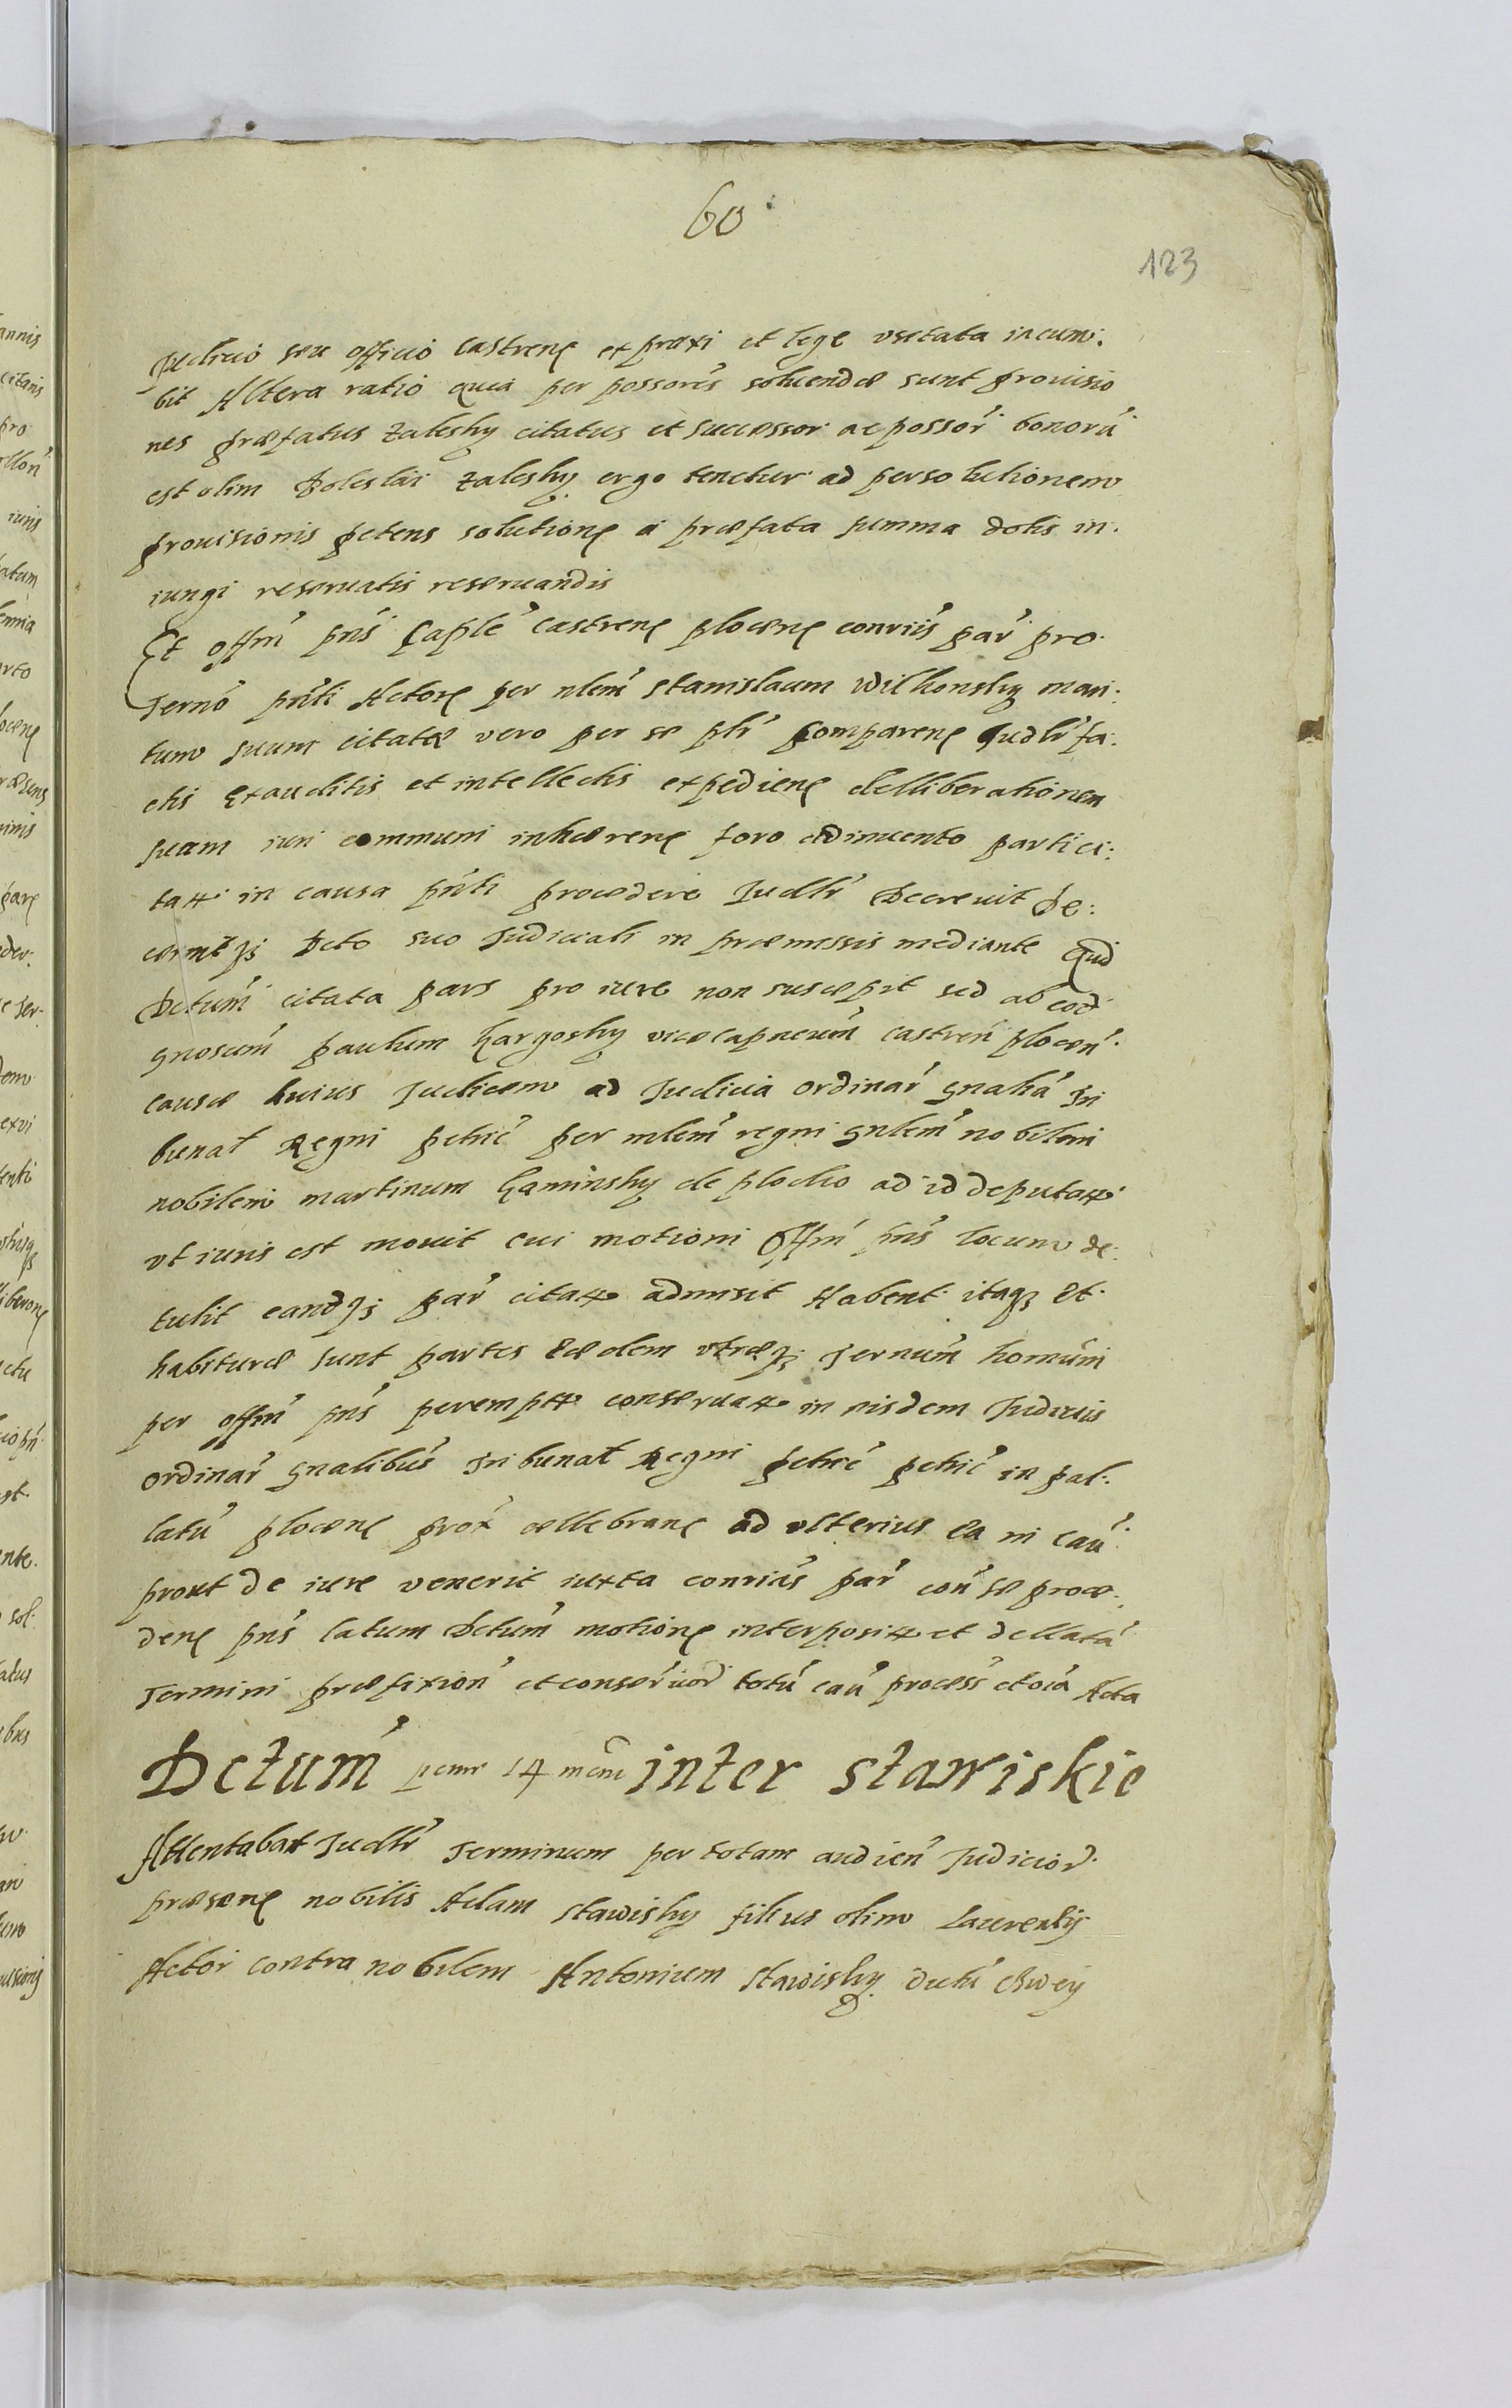 60
123
Judicio seu officio castren ex praxi et lege usitata incum:
bit Altera ratio quia per possores soluendæ sunt prouisio
nes præfatus Zaleskÿ citatus et successor ac possor bonorũ
est olim Boleslai Zaleskÿ ergo tenetur ad persolutionem
prouisionis petens solutionẽ a præfata summa dotis in:
iungi reseruatis reseruandis
Et offm pns Caple castren plocen conriis par pro
Termo pnti Actore per nlem Stanislaum Wilkonskÿ mari:
tum suum citatæ vero per se plr comparen Judlr fa:
ctis exauditis et intellectis expediens delliberationem
suam iuri communi inhæren foro adinuento parti ci:
tatt in causa pnti procedere Judlr Decreuit De:
cernitqз Dcto suo Judiciali in præmissis mediante Quod
Dctum citata pars pro iure non suscæpit sed ab eod
gnosum Paulum Kargoskÿ vicecapneum castren plocen
causæ huius Judicem ad Judicia ordinar gnalia Tri
bunal Regni petric per mlem regni gnlem nobilem
nobilem martinum Kaminskÿ de plocko ad id deputatt
vt iuris est mouit cui motioni Offm pns locum de:
tulit eandqз par citatt admisit Habent itaqз Et
habituræ sunt partes Eædem vtræqз Ternum homuni
per offm pns perempt conseruatt in eisdem Judiciis
ordinar gnalibus Tribunal Regni petric petric in pal:
latu plocen prox cellebran ad vlterius ea in cau
prout de iure venerit iuxta conrias par con se proce:
den pns latum Dctum motione interposit et dellata
Termini præfixion et conseruaõ totũ cau process et oia Acta
Dctum inter Stawiskie
Attentabat Judlr Terminum per totam audien Judicior
præsens nobilis Adam Stawiskÿ filius olim Laurentÿ
Actor contra nobilem Antonium Stawiskÿ dictũ